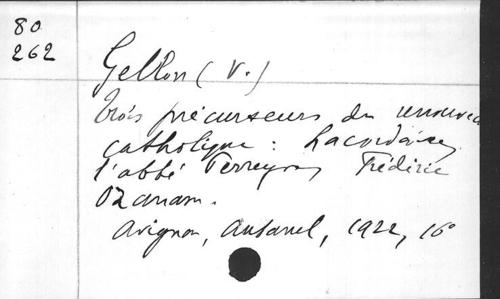 80
262
Gellon (V.)
Trois précurseurs du renouveau
catholique : Lacordaire,
l'abbé Perreyve, Frédéric
Ozanam.
Avignon, Aubanel, 1922, 16°